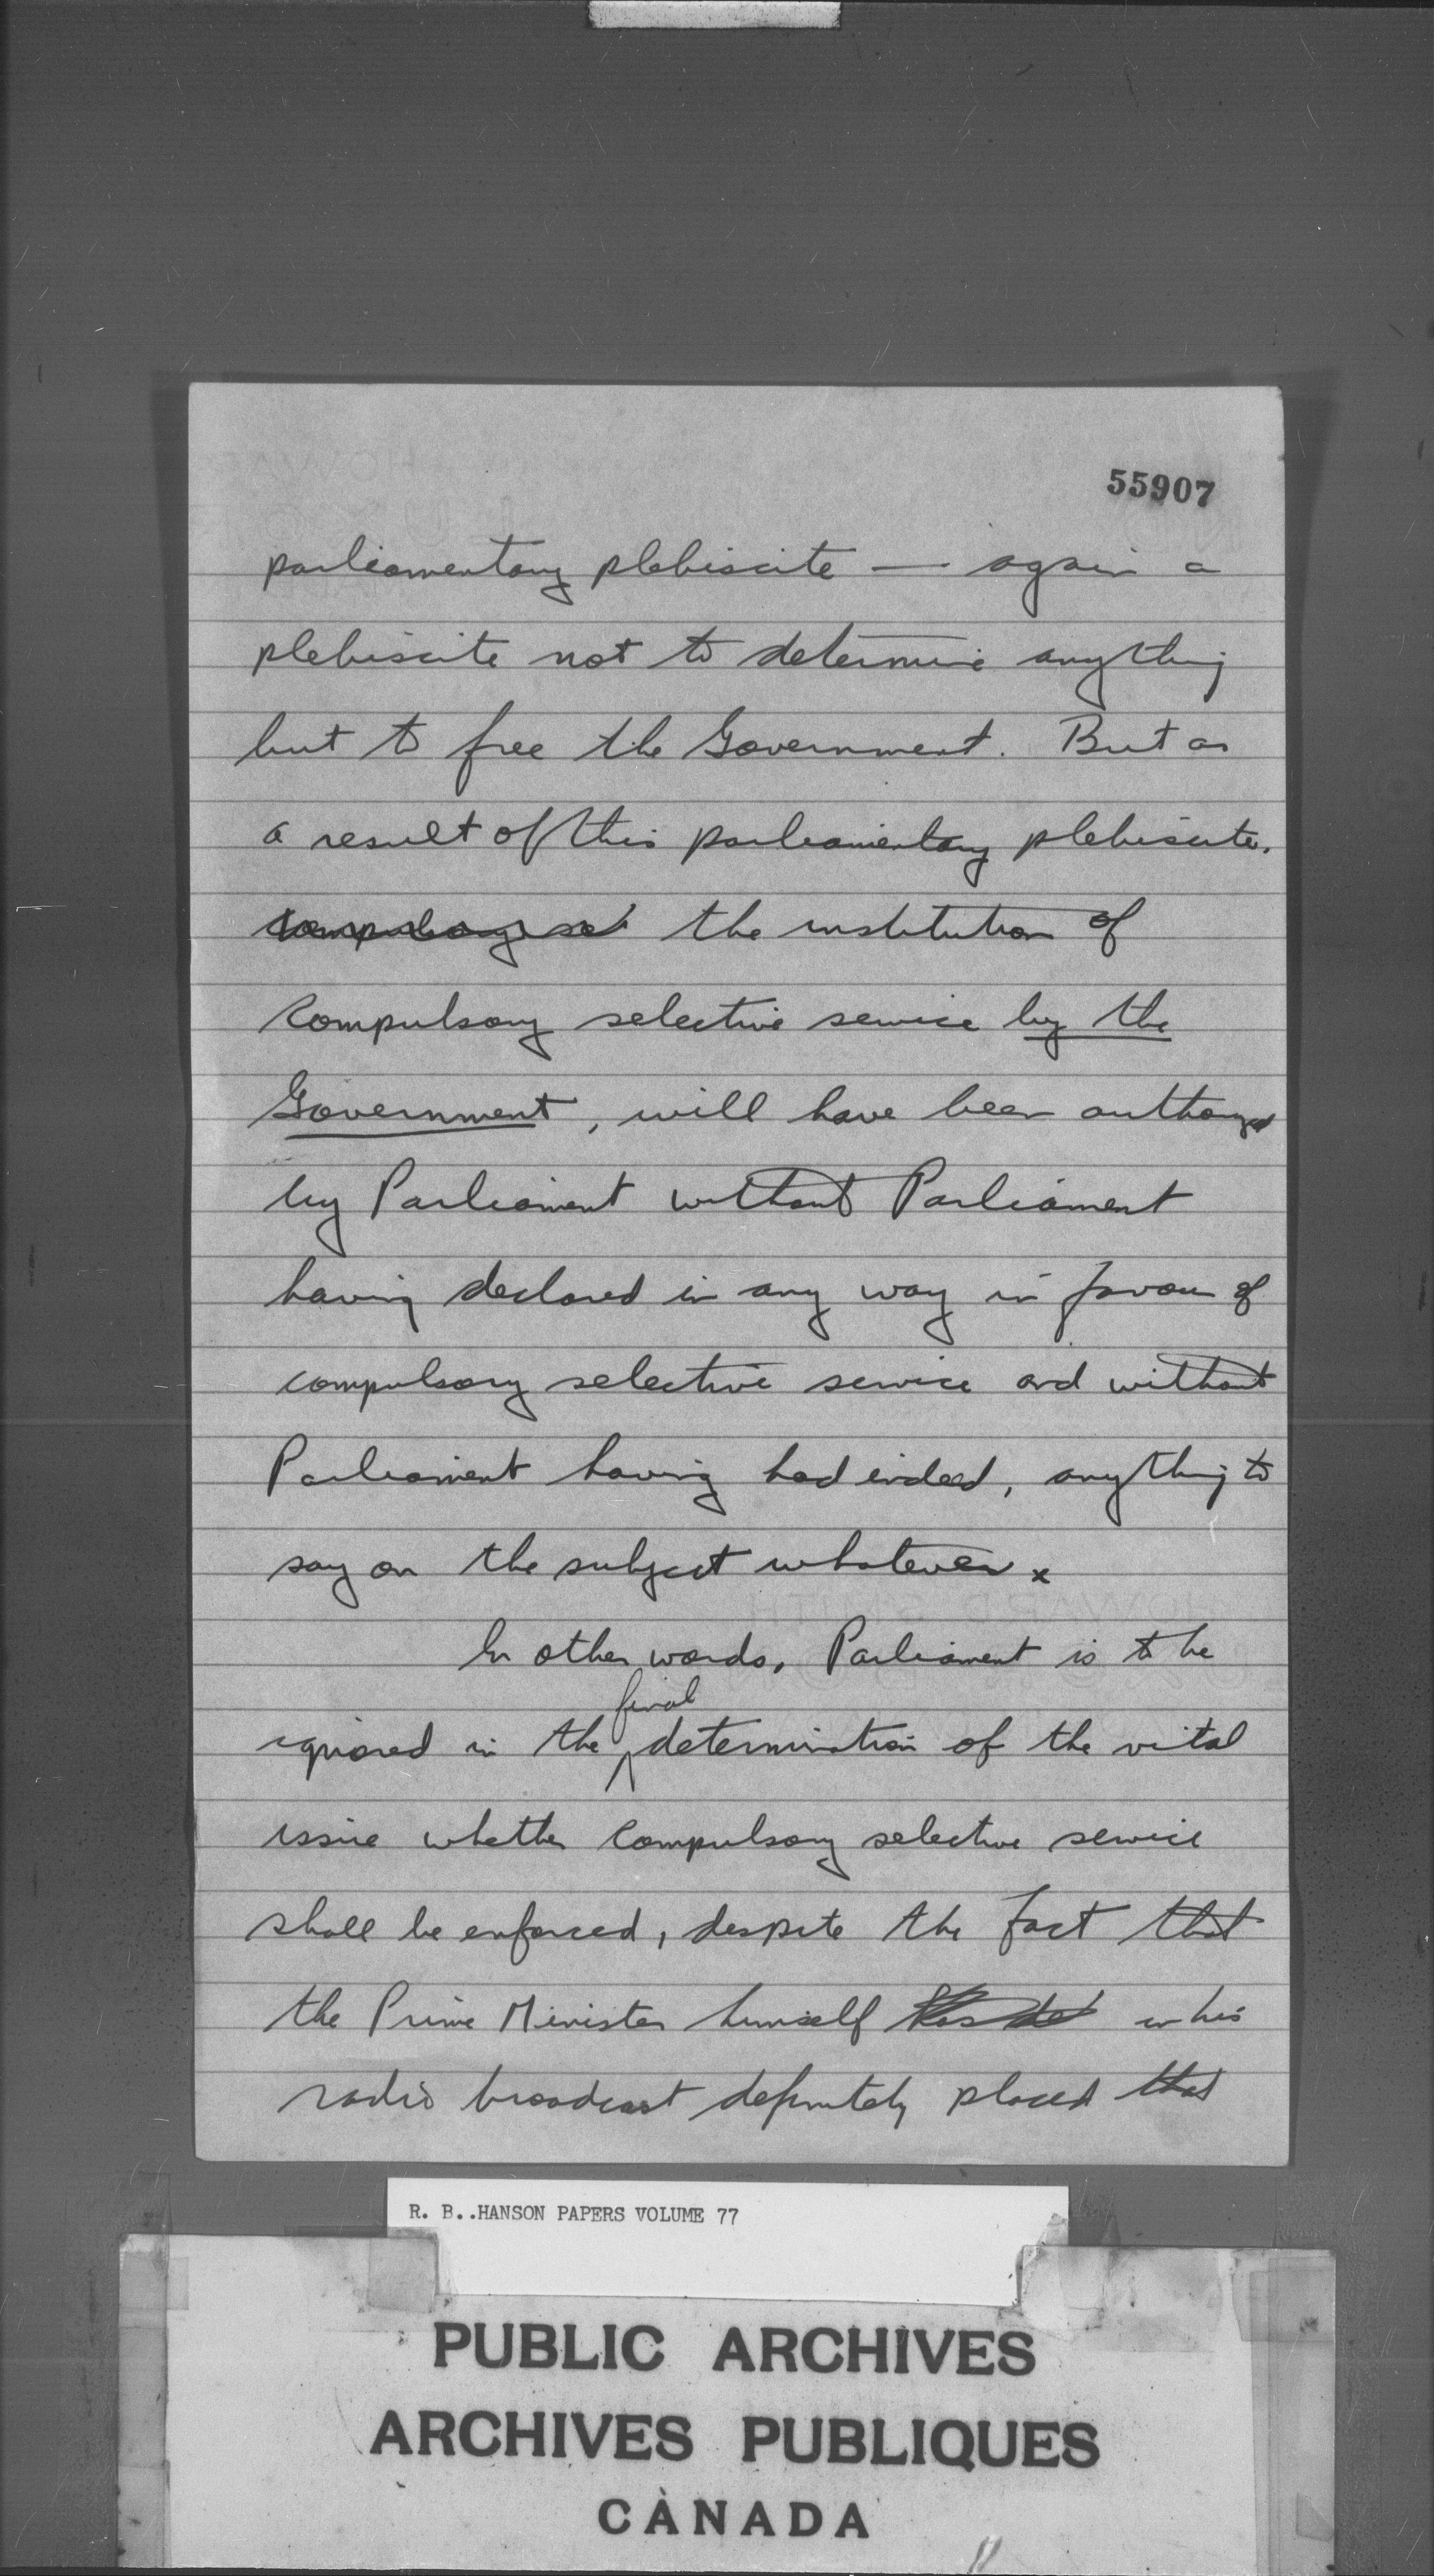 55907
parliamentary plebiscite — again a
plebiscite not to determine anything
but to free the Government. But as
a result of this parliamentary plebiscite.
the institution of
compulsory selective service by the
Government, will have been authorized
by Parliament without Parliament
having declared in any way in favour of
compulsory selective service and without
Parliament having had indeed, anything to
say on the subject whatever x
In other words, Parliament is to be
final
ignored in the determination of the vital
issue whether compulsory selective service
shall be enforced, despite the fact that
the Prime Minister himself in his
radio broadcast definitely placed that
R. B..HANSON PAPERS VOLUME 77
PUBLIC ARCHIVES
ARCHIVES PUBLIQUES
CANADA